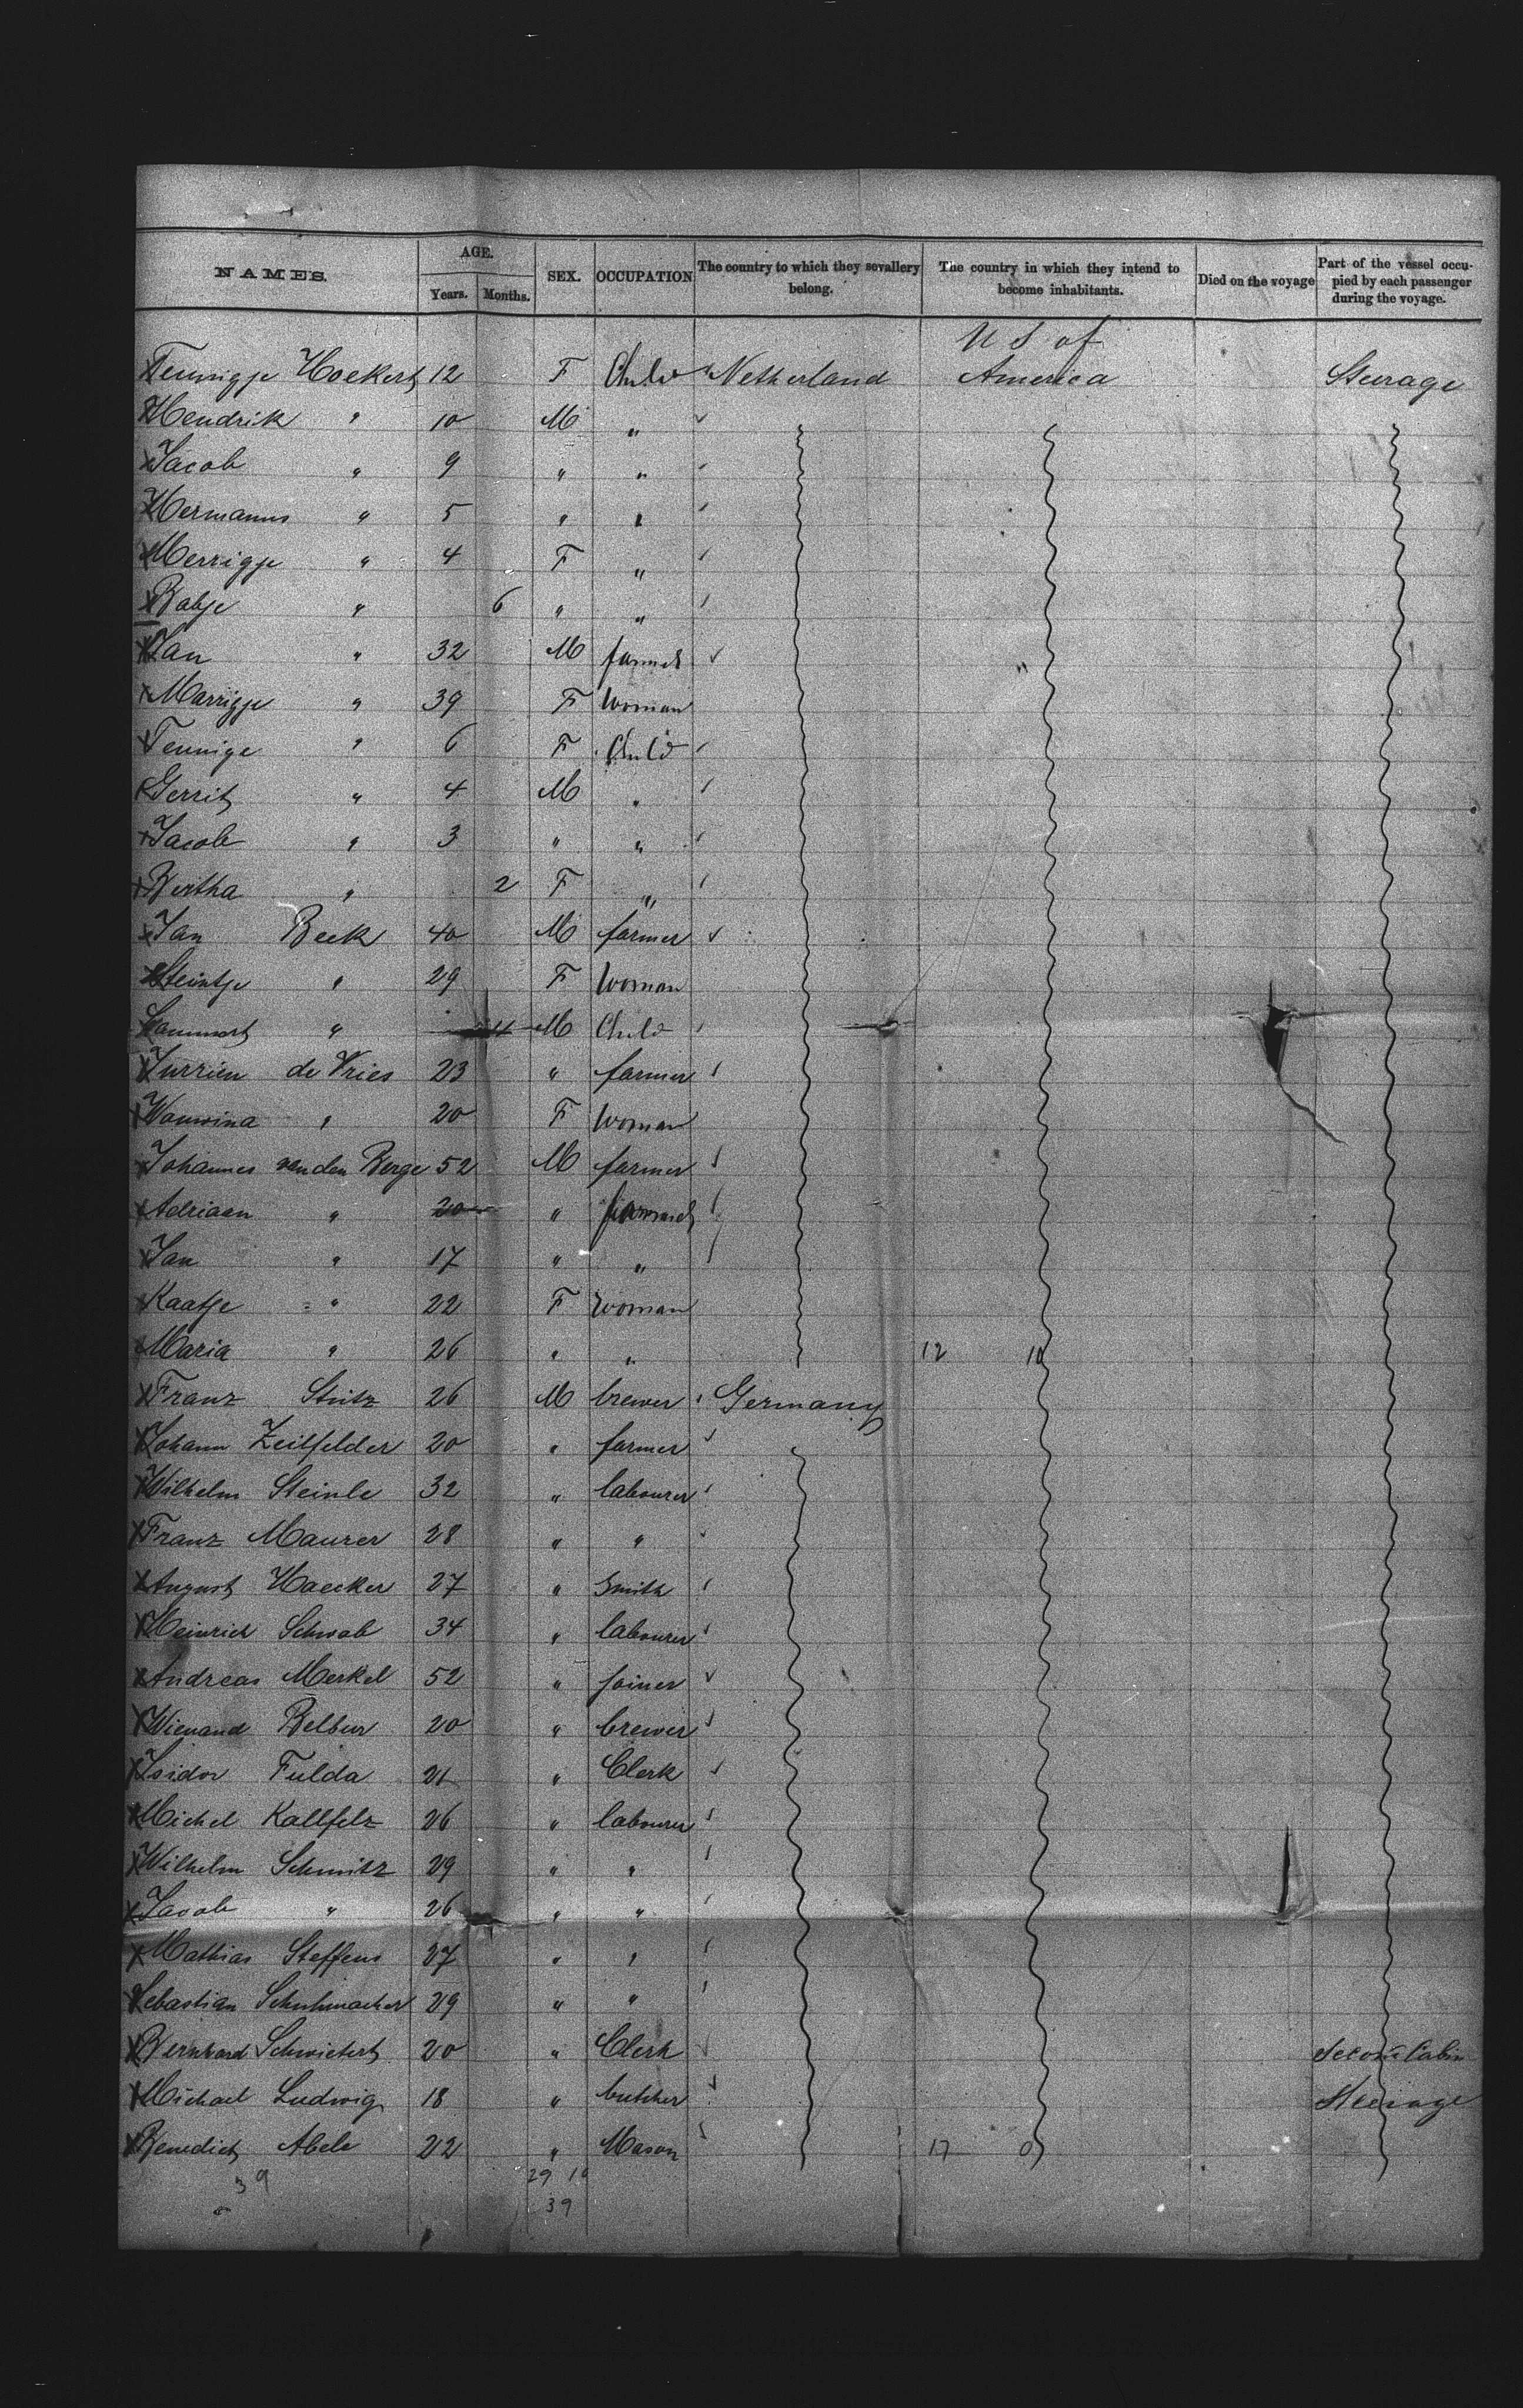 NAMES. AGE. Years. Months. SEX. OCCUPATION The country to which they sevallery belong. The country in which they intend to become inhabitants. Died on the voyage Part of the vessel occupied by each passenger during the voyage.
U S of
Teunigje Hoekert 12 F Child Netherland America Steerage
Hendrik " 10 M "
Jacob " 9 " "
Hermanus " 5 " "
Merrigje " 4 F "
Babje " 6 " "
Jan " 32 M farmer
Marrigje " 39 F Woman
Teunige " 6 F Child
Gerrit " 4 M "
Jacob " 3 " "
Bertha " 2 F "
Jan Beek 40 M farmer
Steintje " 29 F Woman
Lammert " M Child
Jurrien de Vries 23 " farmer
Wouwina " 20 F Woman
Johannes van den Berge 52 M farmer
Adriaan " 20 "
Jan " 17 " "
Kaatje " 22 F Woman
Maria " 26 " " 12 10
Franz Stutz 26 M brewer Germany
Johann Zeilfelder 20 " farmer
Wilhelm Steinle 32 " labourer
Franz Maurer 28 " "
August Haecker 27 " Smith
Heinrich Schwab 34 " labourer
Andreas Merkel 52 " joiner
Wienand Belbur 20 " brewer
Isidor Fulda 21 " Clerk
Michel Kallfelz 26 " labourer
Wilhelm Schmitz 29 " "
Jacob " 26 " "
Mathias Steffens 27 " "
Sebastian Schuhmacher 29 " "
Bernhard Schwietert 20 " Clerk Second Cabin
Michael Ludwig 18 " butcher Steerage
Benedict Abele 22 " Mason 17 0
39 29 10
39